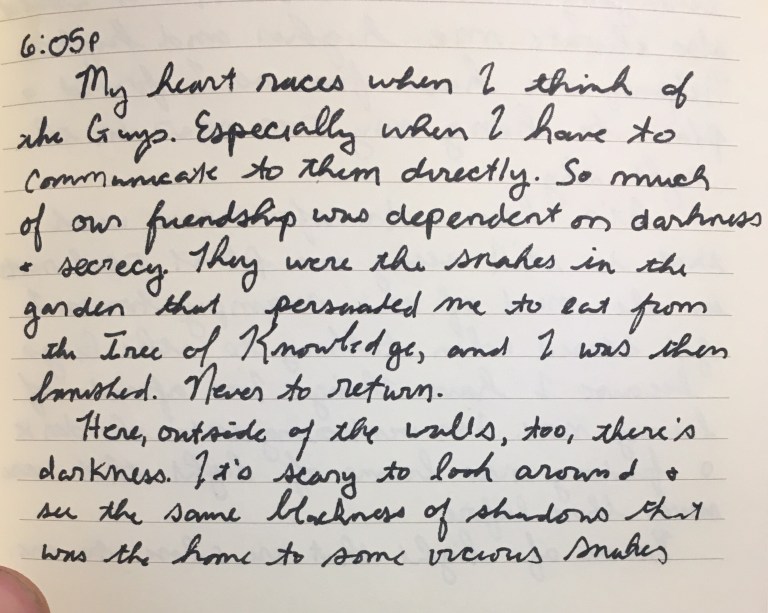 6:05P
My heart races when I think of
the Guys. Especially when I have to
communicate to them directly. So much
of our friendship was dependent on darkness
+ secrecy. They were the snakes in the
garden that persuaded me to eat from
the Tree of Knowledge, and I was then
banished. Never to return.
Here, outside of the walls, too, there's
darkness. It's scary to look around +
see the same blackness of shadows that
was the home to some vicious snakes